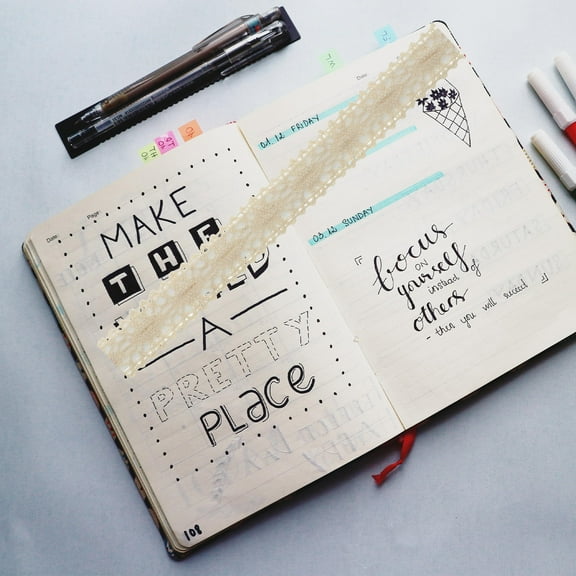 Date: Page:
MAKE
THE
A
PRETTY
PLACE
108
Date:
01.12 FRIDAY
03.12 SUNDAY
「focus
ON
yourself
instead of
others
- then you will succeed 」